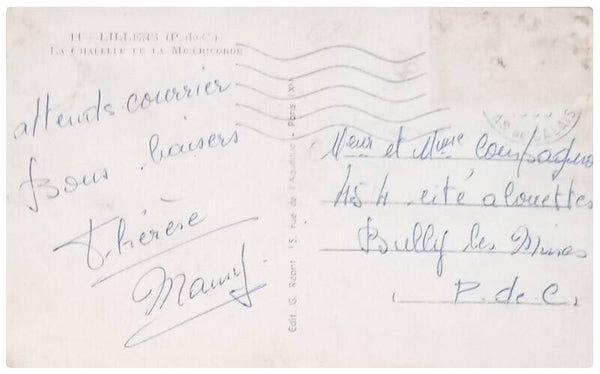 14 - LILLERS (P.-de-C.)
LA CHAPELLE DE LA MISÉRICORDE
attends courrier
Bons baisers
Thérèse
Edit. G. Réant, 15, rue de l'Aqueduc - Paris X
PAS DE CALAIS
Meur et Mme Compagnon
454 cité alouettes
Bully les Mines
P. de C.